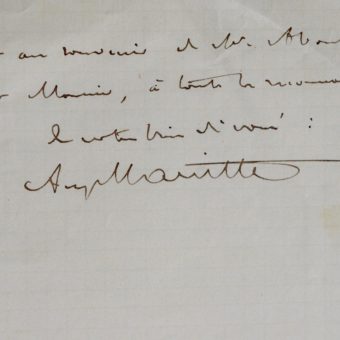 au souvenir de Mr. Abou
Monsieur, à toute la reconnai
de votre bien dévoué :
Aug Mariette